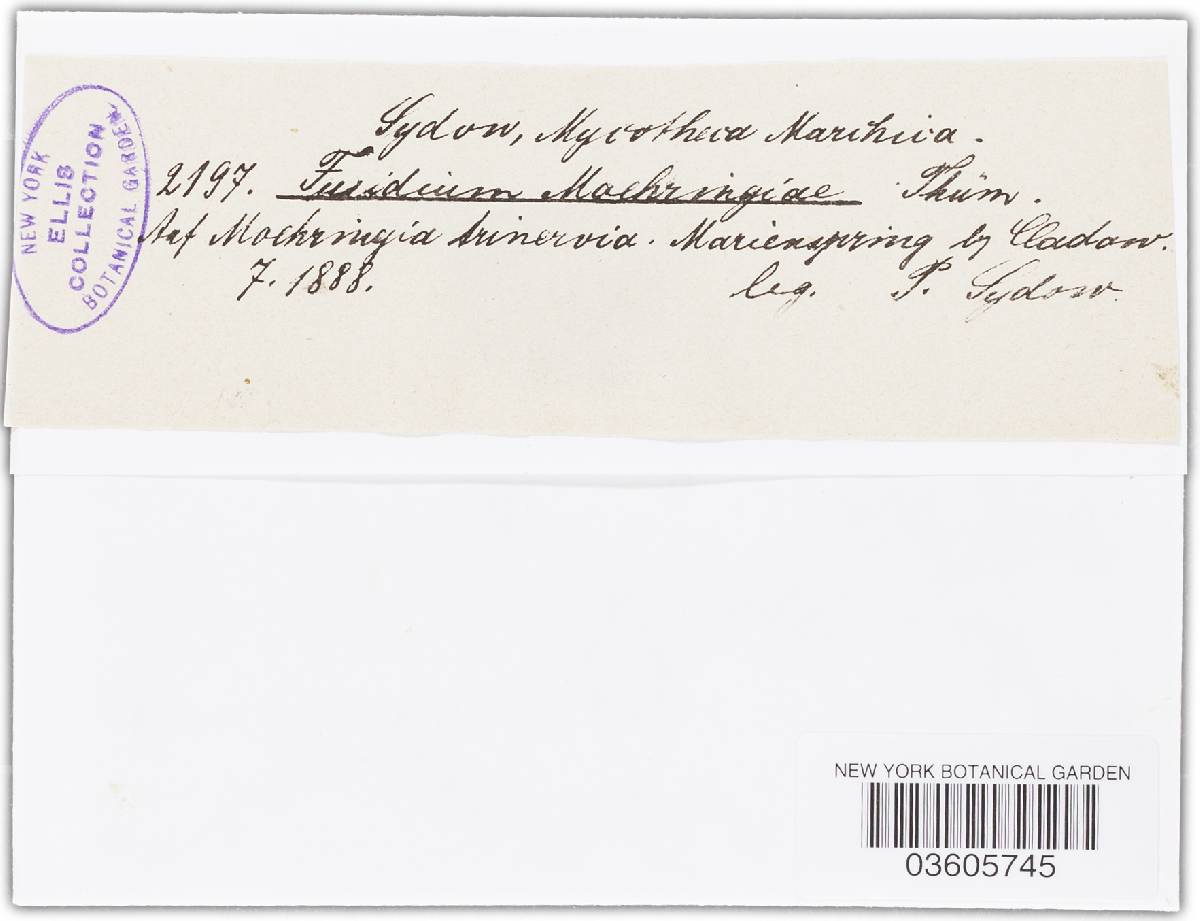 Sydow, Mycotheca Marchica.
2197. Fusidium Moehringiae Thüm.
Auf Moehringia trinervia. Marienspring by Cladow.
7. 1888. leg. P. Sydow.
NEW YORK
ELLIS
COLLECTION
BOTANICAL GARDEN
NEW YORK BOTANICAL GARDEN
03605745